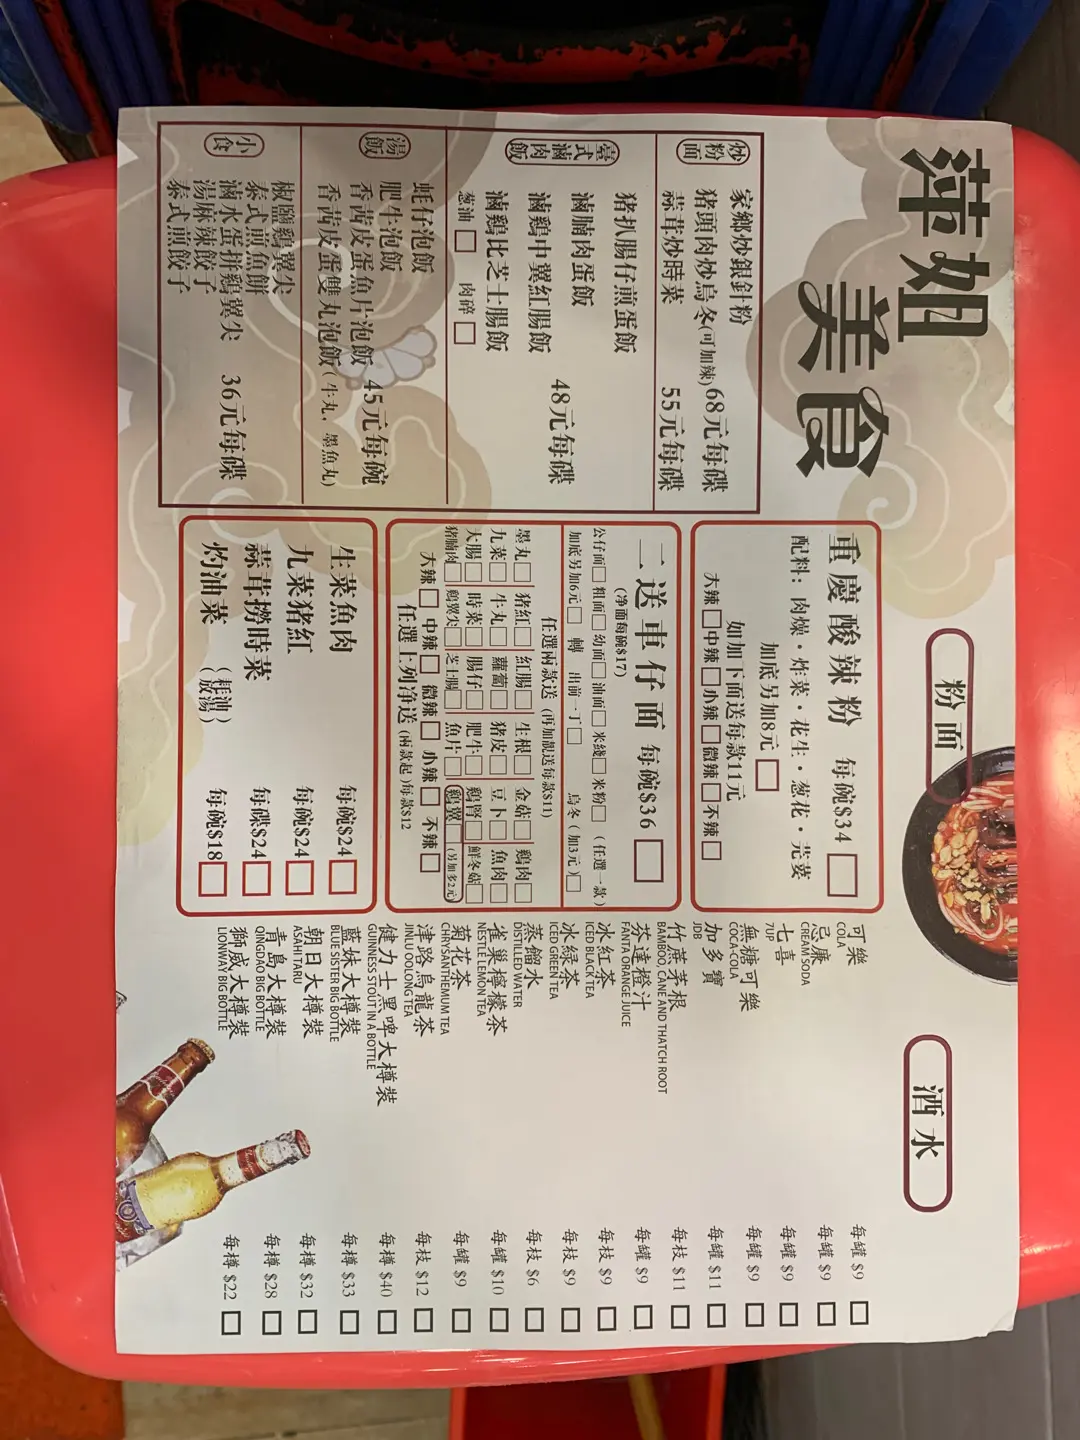 萍姐
美食
炒粉面
家鄉炒銀針粉
豬頭肉炒烏冬(可加辣) 68元每碟
蒜茸炒時菜 55元每碟
臺式滷肉飯
豬扒腸仔煎蛋飯
滷腩肉蛋飯
滷鷄中翼紅腸飯 48元每碟
滷鷄比芝士腸飯
葱油 □ 肉碎 □
湯飯
蚝仔泡飯
肥牛泡飯
香茜皮蛋魚片泡飯 45元每碗
香茜皮蛋雙丸泡飯(牛丸、墨魚丸)
小食
椒鹽鷄翼尖
泰式煎魚餅
滷水蛋拼鷄翼尖 36元每碟
湯麻辣餃子
泰式煎餃子
粉面
重慶酸辣粉 每碗$34 □
配料：肉燥·炸菜·花生·葱花·芫荽
加底另加8元 □
如加下面送每款11元
大辣 □ 中辣 □ 小辣 □ 微辣 □ 不辣 □
二送車仔面 每碗$36 □
(净面每碗$17)
公仔面□ 粗面□ 幼面□ 油面□ 米綫□ 米粉□ (任選一款)
加底另加6元□ 轉 出前一丁□ 烏冬(加3元)□
任選兩款送 (再加靚送每款$11)
墨丸□ 豬紅□ 紅腸□ 生根□ 金菇□ 鷄肉□
九菜□ 牛丸□ 蘿蔔□ 豬皮□ 豆卜□ 魚肉□
大腸□ 時菜□ 腸仔□ 肥牛□ 鷄腎□ 鮮冬菇□
豬腩肉□ 鷄翼尖□ 芝士腸□ 魚片□ 鷄翼□ (另加多2元)
大辣□ 中辣□ 微辣□ 小辣□ 不辣□
任選上列净送 (兩款起)每款$12
生菜魚肉 每碗$24 □
九菜豬紅 每碗$24 □
蒜茸撈時菜 每碟$24 □
灼油菜 (耗油)(放湯) 每碗$18 □
酒水
可樂 每罐 $9 □
COLA
忌廉 每罐 $9 □
CREAM SODA
七喜 每罐 $9 □
7UP
無糖可樂 每罐 $9 □
COCA-COLA
加多寶 每罐 $11 □
JDB
竹蔗茅根 每枝 $11 □
BAMBOO CANE AND THATCH ROOT
芬達橙汁 每罐 $9 □
FANTA ORANGE JUICE
冰紅茶 每枝 $9 □
ICED BLACK TEA
冰緑茶 每枝 $9 □
ICED GREEN TEA
蒸餾水 每枝 $6 □
DISTILLED WATER
雀巢檸檬茶 每罐 $10 □
NESTLE LEMON TEA
菊花茶 每罐 $9 □
CHRYSANTHEMUM TEA
津路烏龍茶 每枝 $12 □
JINLU OOLONG TEA
健力士黑啤大樽裝 每樽 $40 □
GUINNESS STOUT IN A BOTTLE
藍妹大樽裝 每樽 $33 □
BLUE SISTER BIG BOTTLE
朝日大樽裝 每樽 $32 □
ASAHI TARU
青島大樽裝 每樽 $28 □
QINGDAO BIG BOTTLE
獅威大樽裝 每樽 $22 □
LIONWAY BIG BOTTLE